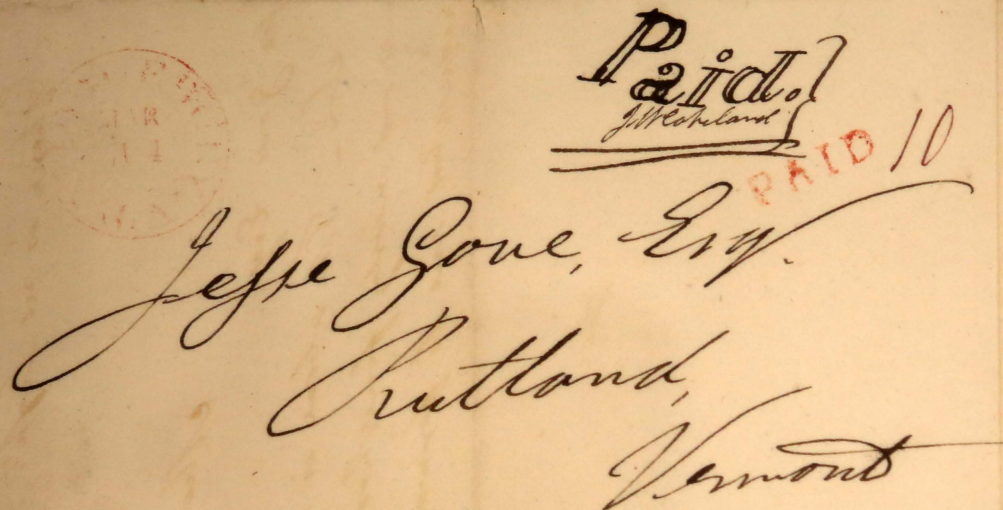 Paid.
J.W. Copeland
PAID 10
Jesse Gove, Esq.
Rutland,
Vermont